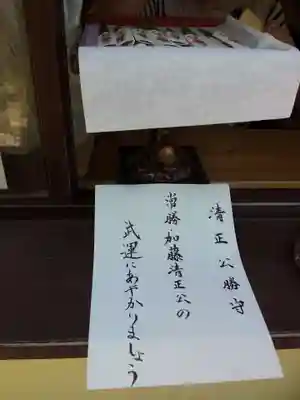 清正公勝守
常勝・加藤清正公の
武運にあやかりましょう